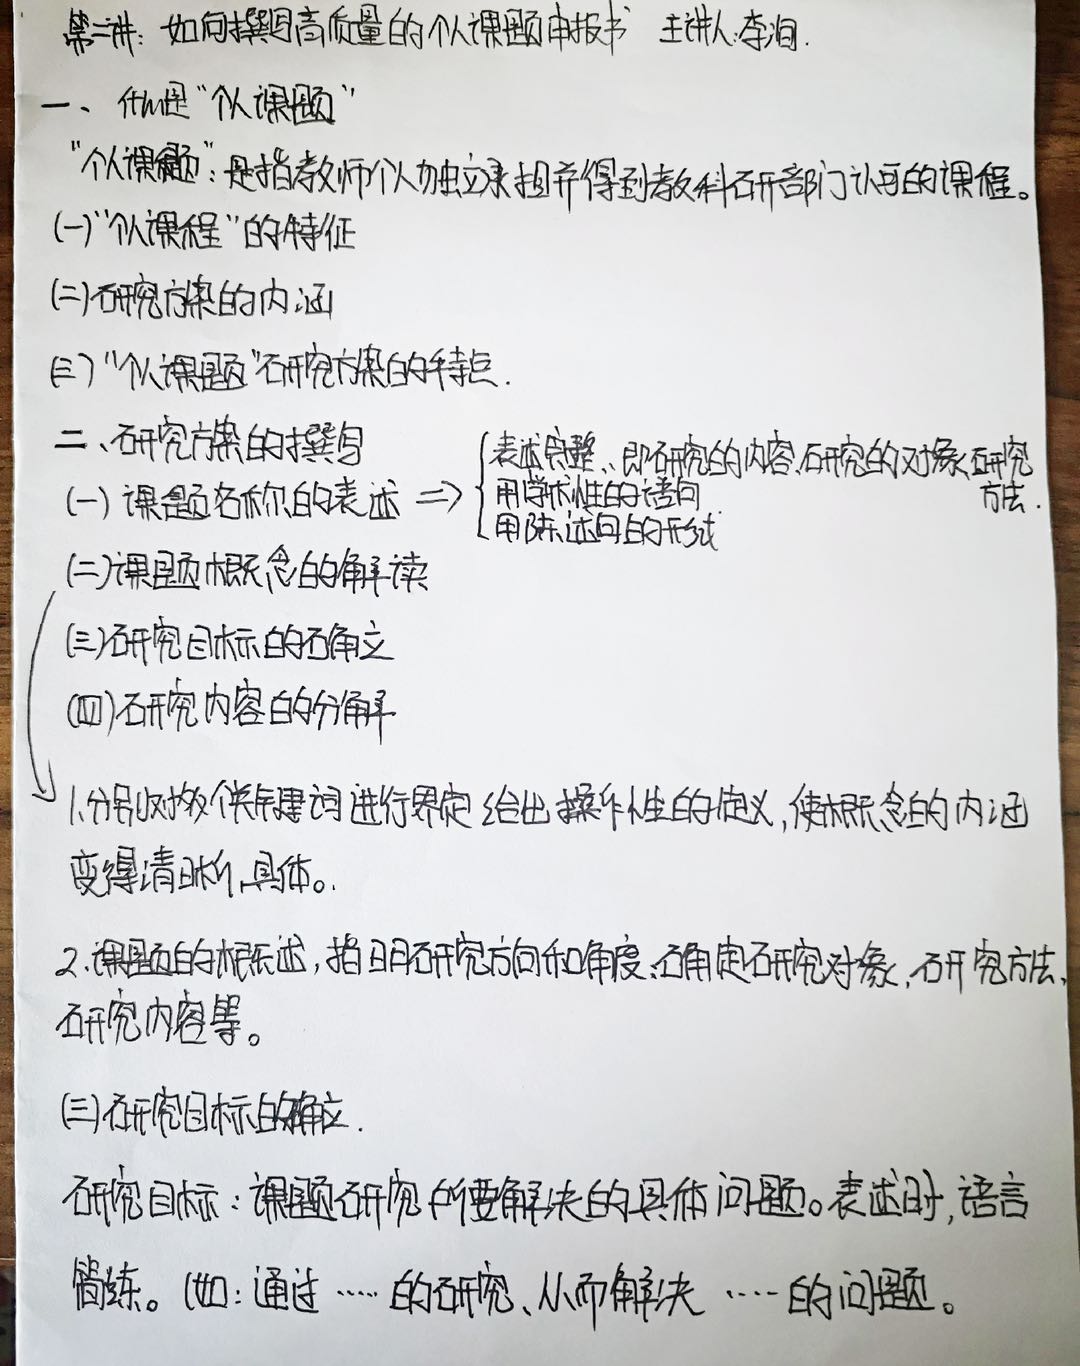 第二讲：如何撰写高质量的个人课题申报书 主讲人：李洵.
一、什么是“个人课题”
“个人课题”：是指教师个人独立承担并得到教科研部门认可的课程。
(一)“个人课程”的特征
(二)研究方案的内涵
(三)“个人课题”研究方案的特点.
二、研究方案的撰写
(一) 课题名称的表述 ⇒ { 表述完整、即研究的内容、研究的对象、研究方法.
用学术性的语句
用陈述句的形式
(二)课题概念的解读
(三)研究目标的确立
(四)研究内容的分解
1.分别对极个关键词进行界定给出操作性的定义，使概念的内涵
变得清晰、具体。
2.课题的概述，指明研究方向和角度、确定研究对象、研究方法、
研究内容等。
(三)研究目标的确立.
研究目标：课题研究所要解决的具体问题。表述时，语言
简练。(如：通过……的研究、从而解决……的问题。